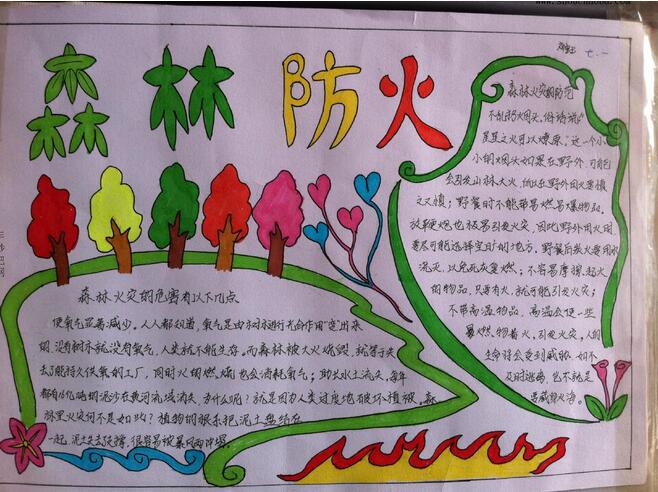 森林防火
七.一
森林火灾的防范
不乱扔烟头,俗话说"
星星之火可以燎原",这一个小
小的烟头如果在野外,可能
会引发山林大火,所以在野外用火要慎
之又慎;野餐时不能带易燃易爆物品,
放鞭炮也极易引发火灾,因此野外用火用
要尽可能选择空旷的地方,野餐后放火要用水
浇灭,以免死灰复燃;不容易摩擦起火
的物品,只要有火,就可能引发火灾;
不带高温物品,高温会使一些
易燃物着火,引发火灾,人的
生命将会受到威胁,如不
及时逃离,也不就是
葬威胁火海。
森林火灾的危害有以下几点
使氧气显著减少。人人都知道,氧气是由树木进行光合作用"变"出来
的,没有树木就没有氧气,人类就不能生存,而森林被大火烧毁,就等于失
去了能持久供氧的工厂,同时火的燃烧也会消耗氧气;助长水土流失,每年
都有16亿吨的泥沙在黄河流域消失,为什么呢?就是因为人类过度地破坏植被,森
林里火灾何不是如此?植物的根系把泥土盘结在
一起,泥土失去支撑,很容易被暴风雨冲塌